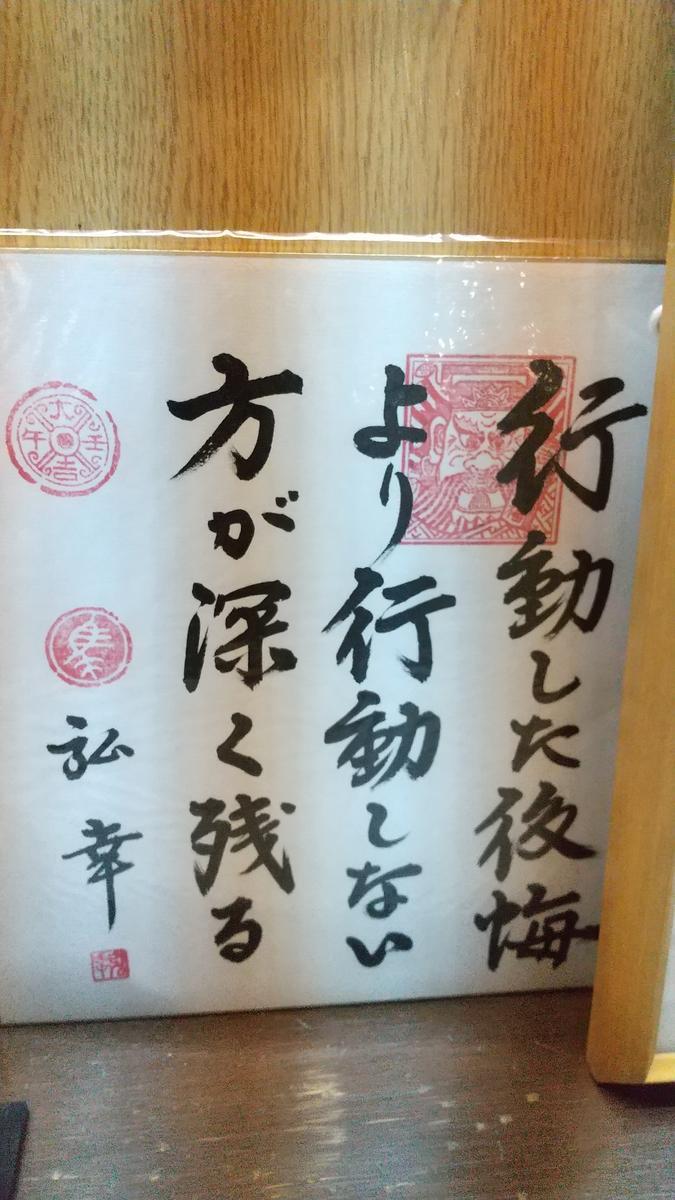 行動した後悔
より行動しない
方が深く残る
弘幸